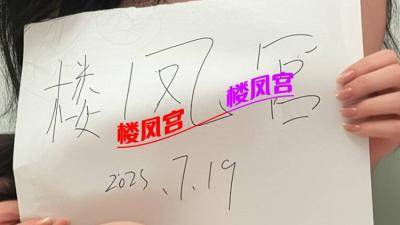 楼凤宫
楼凤宫
楼凤宫
2025.7.19